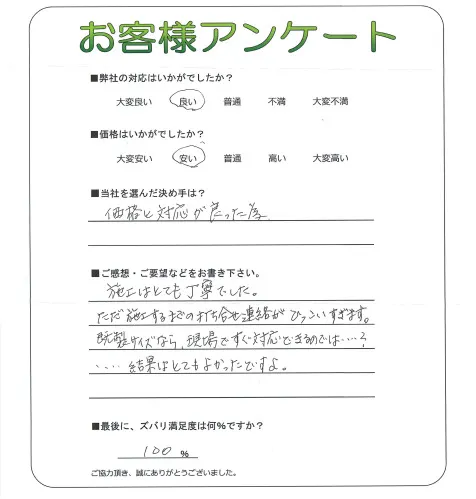 お客様アンケート
■弊社の対応はいかがでしたか？
大変良い 良い 普通 不満 大変不満
■価格はいかがでしたか？
大変安い 安い 普通 高い 大変高い
■当社を選んだ決め手は？
価格と対応が良った為
■ご感想・ご要望などをお書き下さい。
施工はとても丁寧でした。
ただ施工するまでの打ち合せ連絡がびっこいすぎます。
既製サイズなら、現場ですぐ対応できるのでは‥‥？
‥‥結果はとてもよかったですよ。
■最後に、ズバリ満足度は何％ですか？
100 ％
ご協力頂き、誠にありがとうございました。